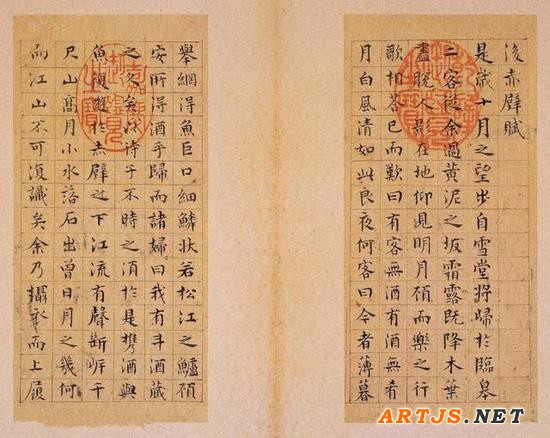 後赤壁賦
是歲十月之望步自雪堂將歸於臨皋
二客從余過黃泥之坂霜露既降木葉
盡脫人影在地仰見明月顧而樂之行
歌相答已而歎曰有客無酒有酒無肴
月白風清如此良夜何客曰今者薄暮
舉網得魚巨口細鱗狀若松江之鱸顧
安所得酒乎歸而諸婦曰我有斗酒藏
之久矣以待子不時之須於是攜酒與
魚復遊於赤壁之下江流有聲斷岸千
尺山高月小水落石出曾日月之幾何
而江山不可復識矣余乃攝衣而上履
ARTJS.NET